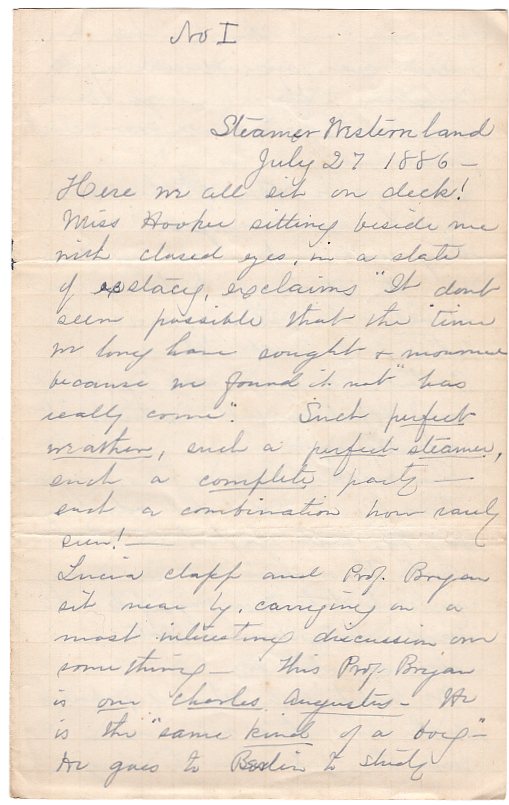 No I
Steamer Westernland
July 27 1886 –
Here we all sit on deck!
Miss Hooker sitting beside me
with closed eyes, in a state
of exstacy, exclaims "It dont
seem possible that the "time
we long have sought & mourned
because we found it not" has
really come". Such perfect
weather, such a perfect steamer,
such a complete party –
such a combination how rarely
seen! –
Lucia Clapp and Prof. Bryan
sit near by, carrying on a
most interesting discussion on
something – This Prof. Bryan
is our Charles Augustus – He
is the "same kind of a boy" –
He goes to Berlin to study